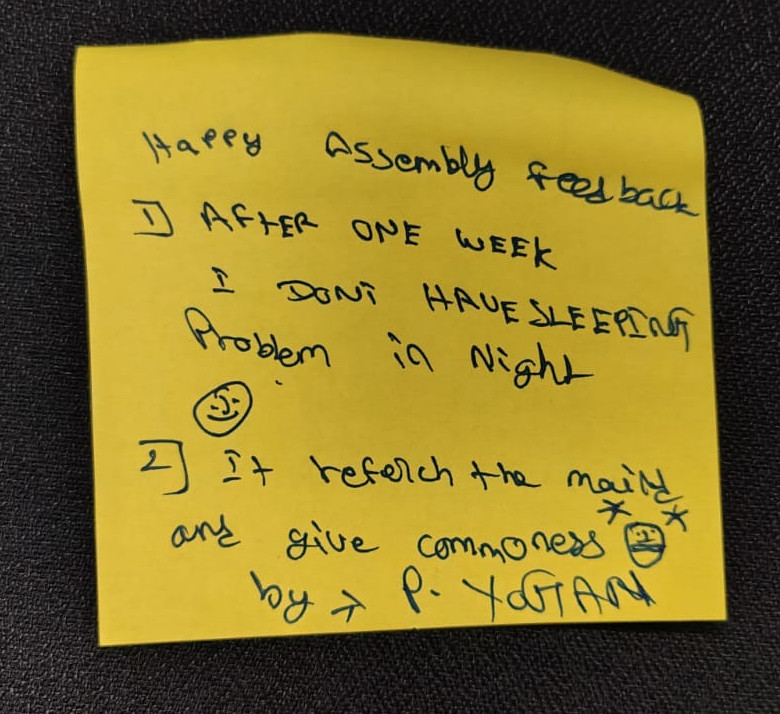 Happy Assembly feedback
1] AFTER ONE WEEK
I DONT HAVE SLEEPING
Problem in Night
2] It referch the maind
and give commoness
by → P. YOGIAN